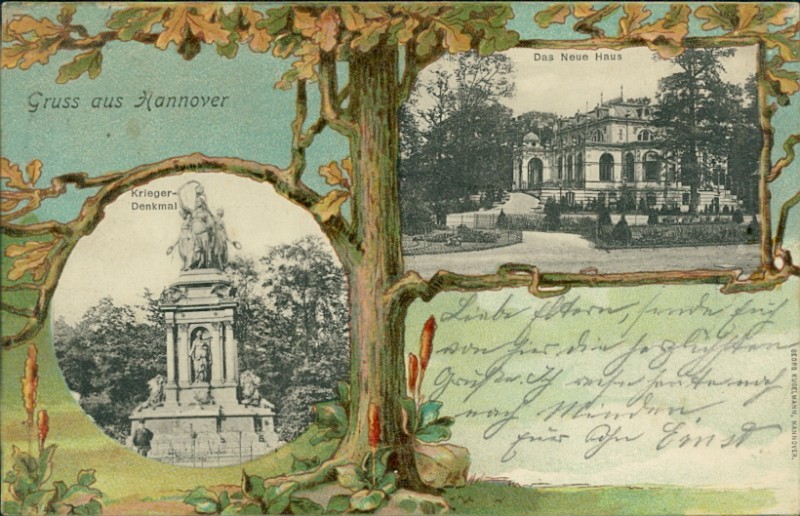 Gruss aus Hannover
Das Neue Haus
Krieger-
Denkmal
Liebe Eltern, sende Euch
von hier die herzlichsten
Grüße. Ich reise heute noch
nach Minden
Euer Sohn Ernst
GEORG KUGELMANN, HANNOVER.